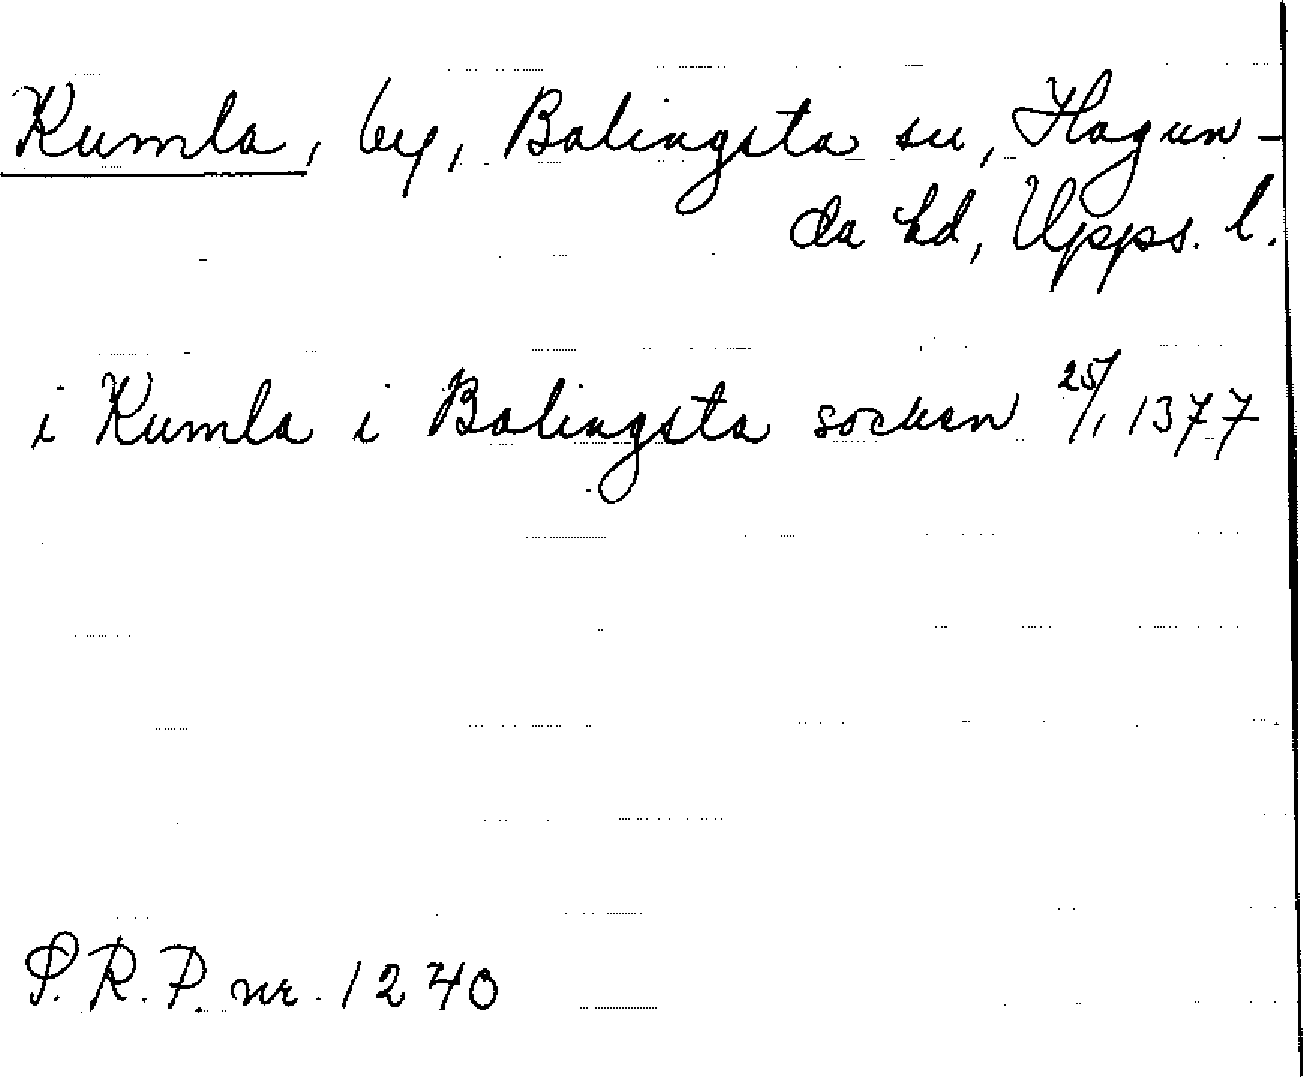 Kumla, by, Balingsta sn, Hagun-
da hd, Upps. l.
i Kumla i Balingsta sockan 25/1 1377
S.R.P. nr. 1240